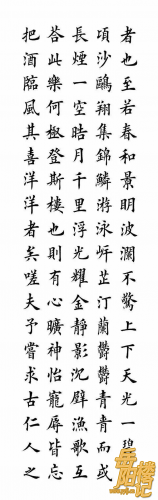 者也至若春和景明波瀾不驚上下天光一碧
頃沙鷗翔集錦鱗游泳岸芷汀蘭鬱鬱青青而或
長煙一空皓月千里浮光耀金靜影沉璧漁歌互
荅此樂何極登斯樓也則有心曠神怡寵辱皆忘
把酒臨風其喜洋洋者矣嗟夫予嘗求古仁人之
岳陽樓記